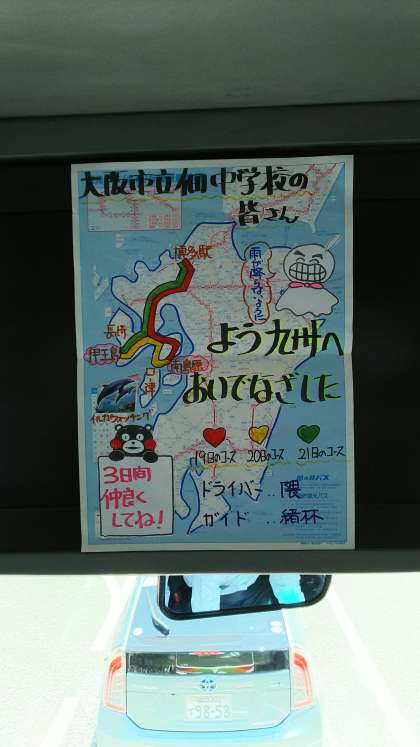 大阪市立佃中学校の
皆さん
博多駅
雨が降らないように
長崎
伊王島
口ノ津
南島原
よう九州へ
おいでなざした
イルカウォッチング
19日のコース
20日のコース
21日のコース
3日間
仲良く
してね!
ドライバー‥隈
ガイド‥緒杯
98-58